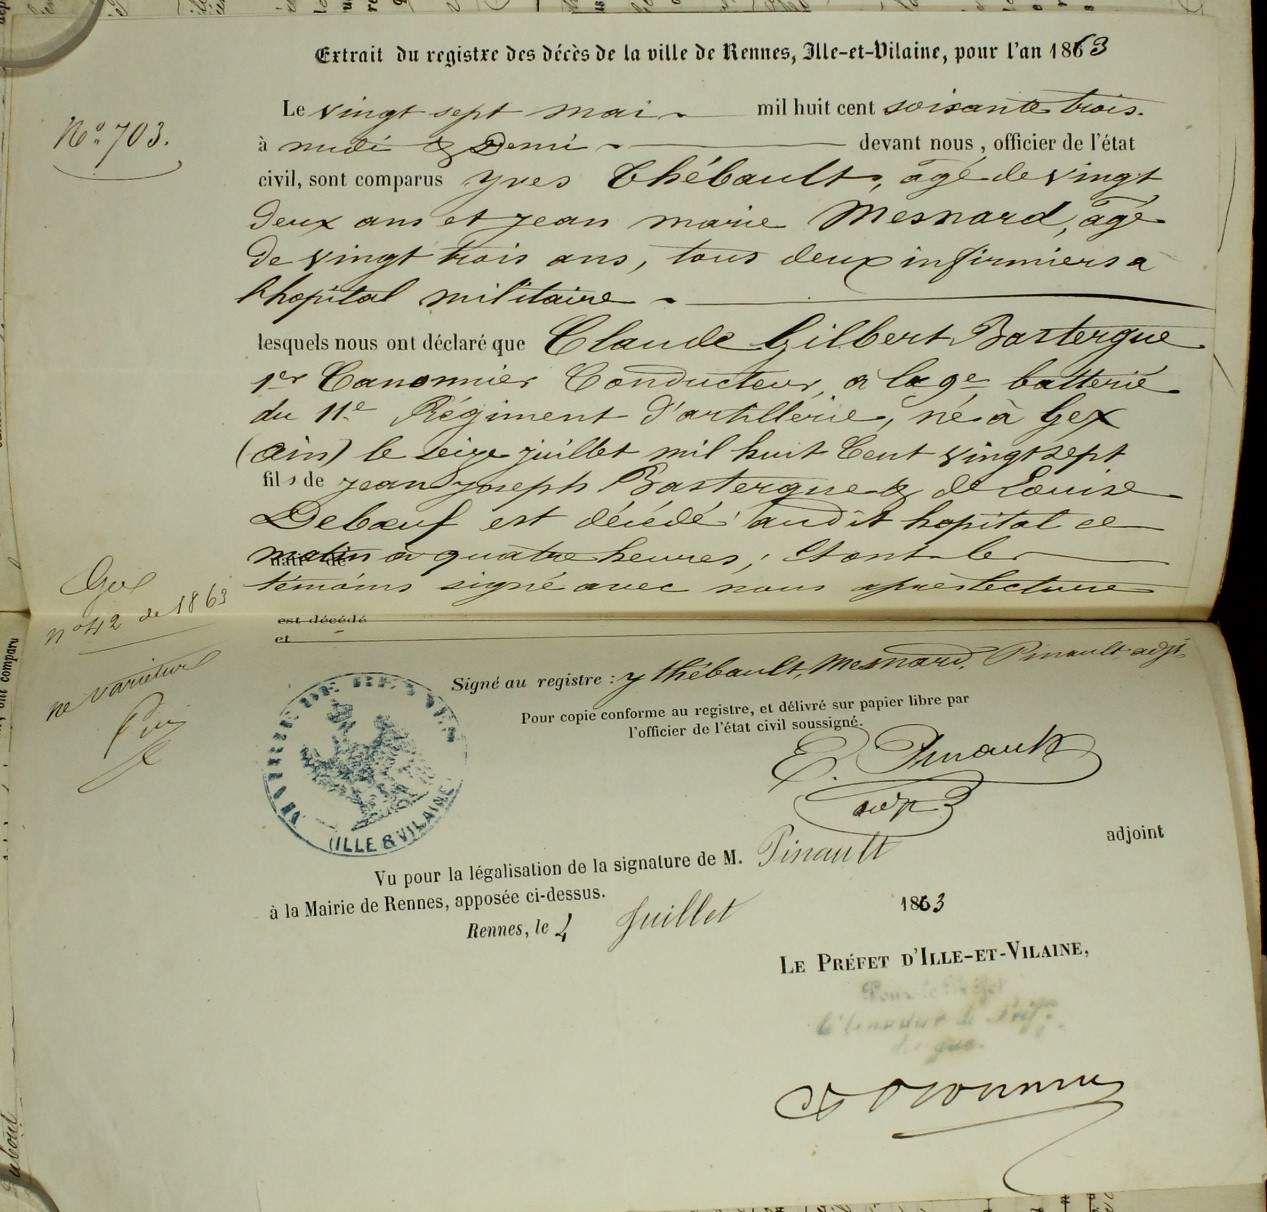 Extrait du registre des décès de la ville de Rennes, Ille-et-Vilaine, pour l'an 1863
Le vingt sept mai mil huit cent soixante trois.
No 703.
à midi & Demi devant nous, officier de l'état
civil, sont comparus Yves Thébault, âgé de vingt
deux ans et jean marie Mesnard, âgé
de vingt trois ans, tous deux infirmiers à
l'hopital militaire
lesquels nous ont déclaré que Claude Gilbert Bastergue
1er Canonnier Conducteur, à la 9e batterie
du 11e Régiment d'artillerie, né à Gex
(ain) le seize juillet mil huit Cent vingt sept
fils de jean joseph Bastergue & de Louise
Debœuf est décédé audit hopital ce
matin à quatre heures, Et ont les
témoins signé avec nous après lecture
Gex
no 42 de 1863
est décédé
et
ne varietur
Signé au registre : y thébault, Mesnard, Pinault adjt
Pour copie conforme au registre, et délivré sur papier libre par
l'officier de l'état civil soussigné.
E. Pinault
adjt
MAIRIE DE RENNES
(ILLE & VILAINE)
Vu pour la légalisation de la signature de M. Pinault adjoint
à la Mairie de Rennes, apposée ci-dessus.
Rennes, le 4 Juillet 1863
LE PRÉFET D'ILLE-ET-VILAINE,
Pour le Préfet